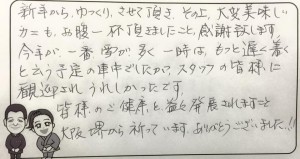 新年から、ゆっくり、させて頂き、その上、大変美味しい
カニも、お腹一杯頂きましたこと、感謝致します。
今年が、一番、雪が多く一時は、もっと遅く着く
と云う予定の車中でしたが、スタッフの皆様に
歓迎され うれしかったです。
皆様のご健康と益々発展されますこと
大阪 堺から祈っています。ありがとうございました!!